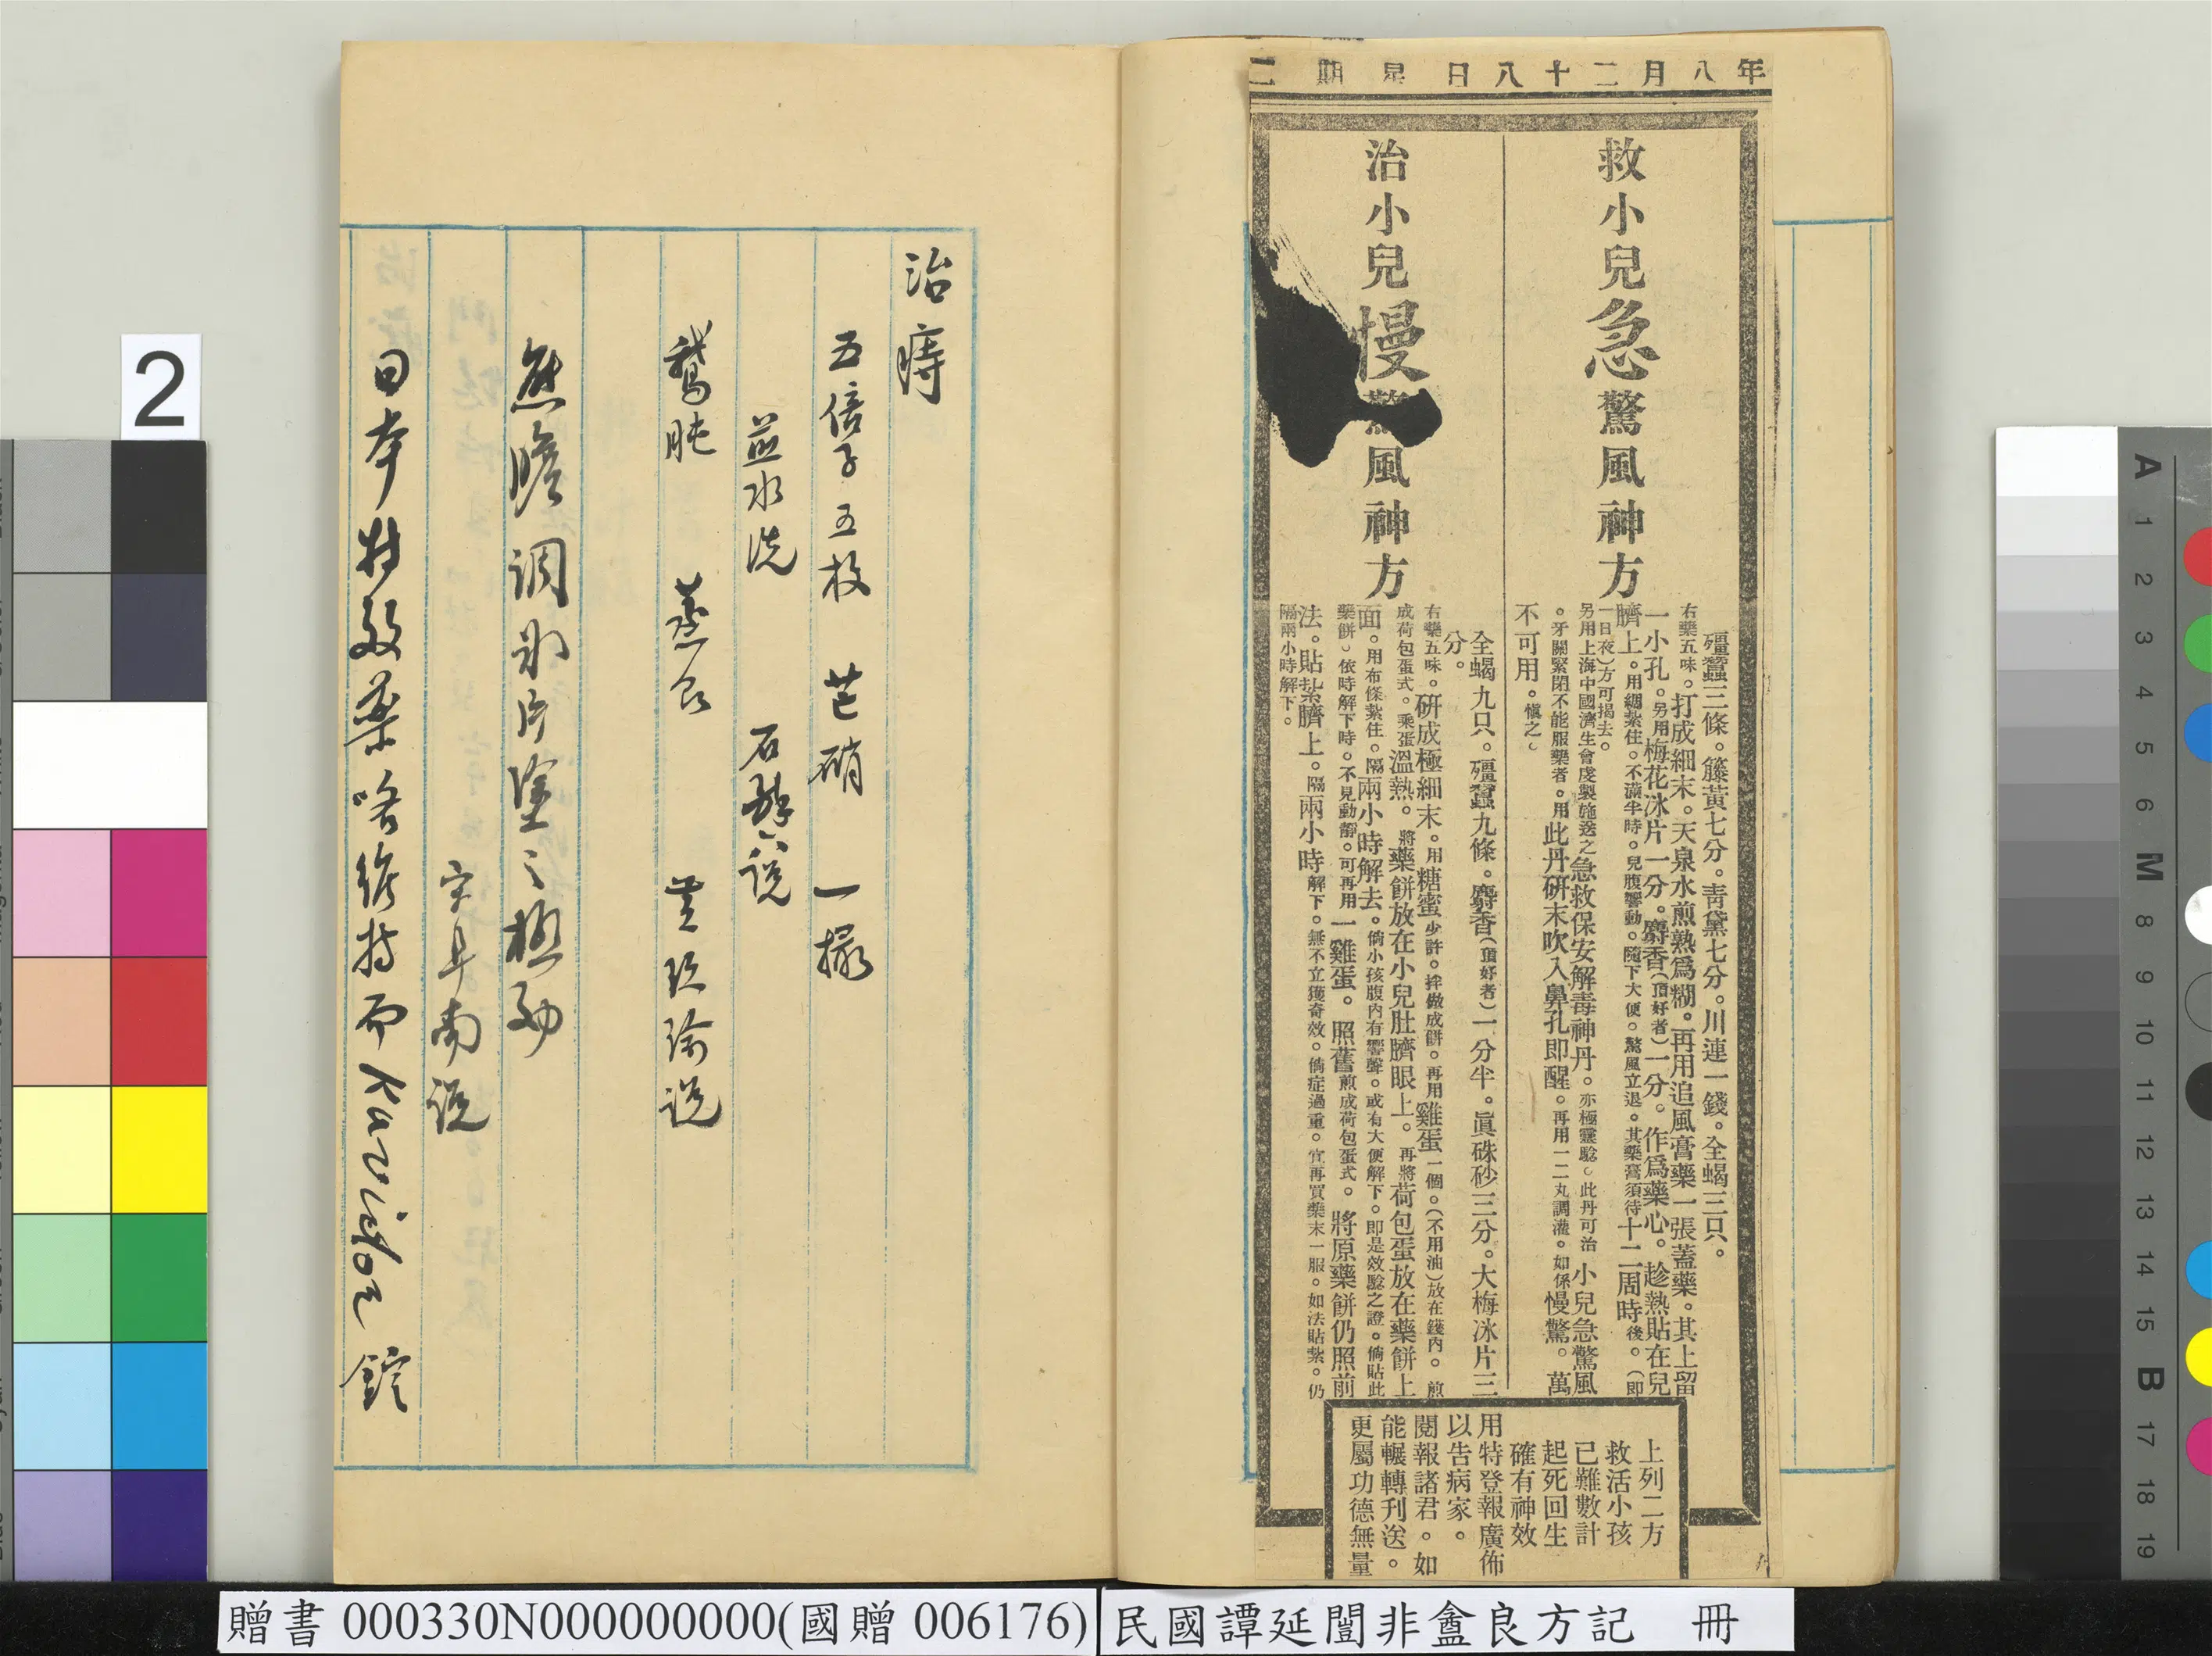 年八月二十八日星期二
救小兒急驚風神方
殭蠶三條。籐黃七分。靑黛七分。川連一錢。全蝎三只。
右藥五味。打成細末。天泉水煎熟爲糊。再用追風膏藥一張蓋藥。其上留
一小孔。另用梅花冰片一分。麝香(頂好者)一分。作爲藥心。趁熱貼在兒
臍上。用綢紮住。不滿半時。兒腹響動。隨下大便。驚風立退。其藥膏須待十二周時後。(即
一日夜)方可揭去。
另用上海中國濟生會虔製施送之急救保安解毒神丹。亦極靈驗。此丹可治小兒急驚風
。牙關緊閉不能服藥者。用此丹研末吹入鼻孔即醒。再用一二丸調灌。如係慢驚。萬
不可用。愼之。
治小兒慢驚風神方
全蝎九只。殭蠶九條。麝香(頂好者)一分半。眞硃砂三分。大梅冰片三
分。
右藥五味。研成極細末。用糖蜜少許。拌做成餅。再用雞蛋一個。(不用油)放在鑊內。煎
成荷包蛋式。乘蛋溫熱。將藥餅放在小兒肚臍眼上。再將荷包蛋放在藥餅上
面。用布條紮住。隔兩小時解去。倘小孩腹內有響聲。或有大便解下。即是效驗之證。倘貼此
藥餅。依時解下時。不見動靜。可再用一雞蛋。照舊煎成荷包蛋式。將原藥餅仍照前
法。貼紮臍上。隔兩小時解下。無不立獲奇效。倘症過重。宜再買藥末一服。如法貼紮。仍
隔兩小時解下。
上列二方
救活小孩
已難數計
起死回生
確有神效
用特登報廣佈
以告病家。
閱報諸君。如
能輾轉刋送。
更屬功德無量
治痔
五倍子五枚 芒硝 一撮
益水洗 石醉六說
鵝肫 蒸食 黃玖瑜說
熊膽調冰片塗之極効
宋阜南說
日本特效藥
錠
2
贈書 000330N000000000(國贈 006176)
民國譚延闓非盦良方記 冊
A 1 2 3 4 5 6 M 8 9 10 11 12 13 14 15 B 17 18 19